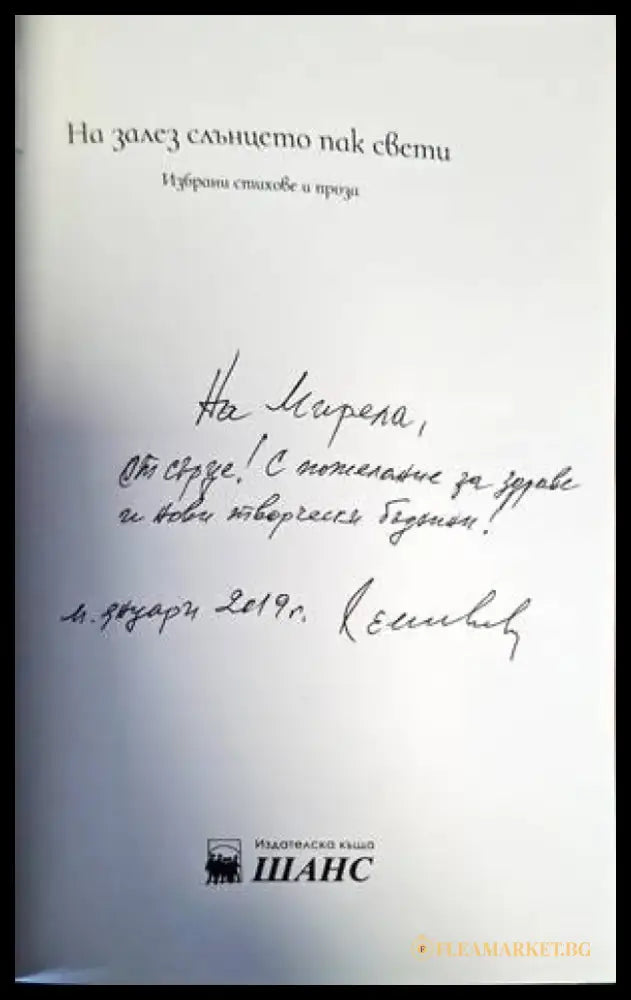 На залез слънцето пак свети
Избрани стихове и проза
На Мирела,
От сърце! С пожелание за здраве
и нови творчески !
м. януари 2019 г.
Издателска къща
ШАНС
FLEAMARKET.BG